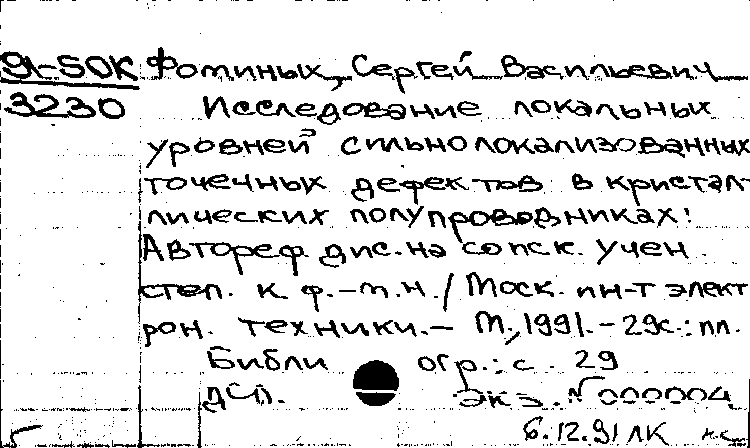 91-50К Фоминых, Сергей Васильевич
3230 Исследование локальных
уровней сильнолокализованных
точечных дефектов в кристал-
лических полупроводниках:
Автореф. дис. на соиск. учен.
степ. к. ф.-м.н. / Моск. ин-т элект
рон. техники. - М., 1991. - 29с.: ил.
Библи огр.: с. 29
ДСП. Экз. № 000004
6.12.91 ЛК